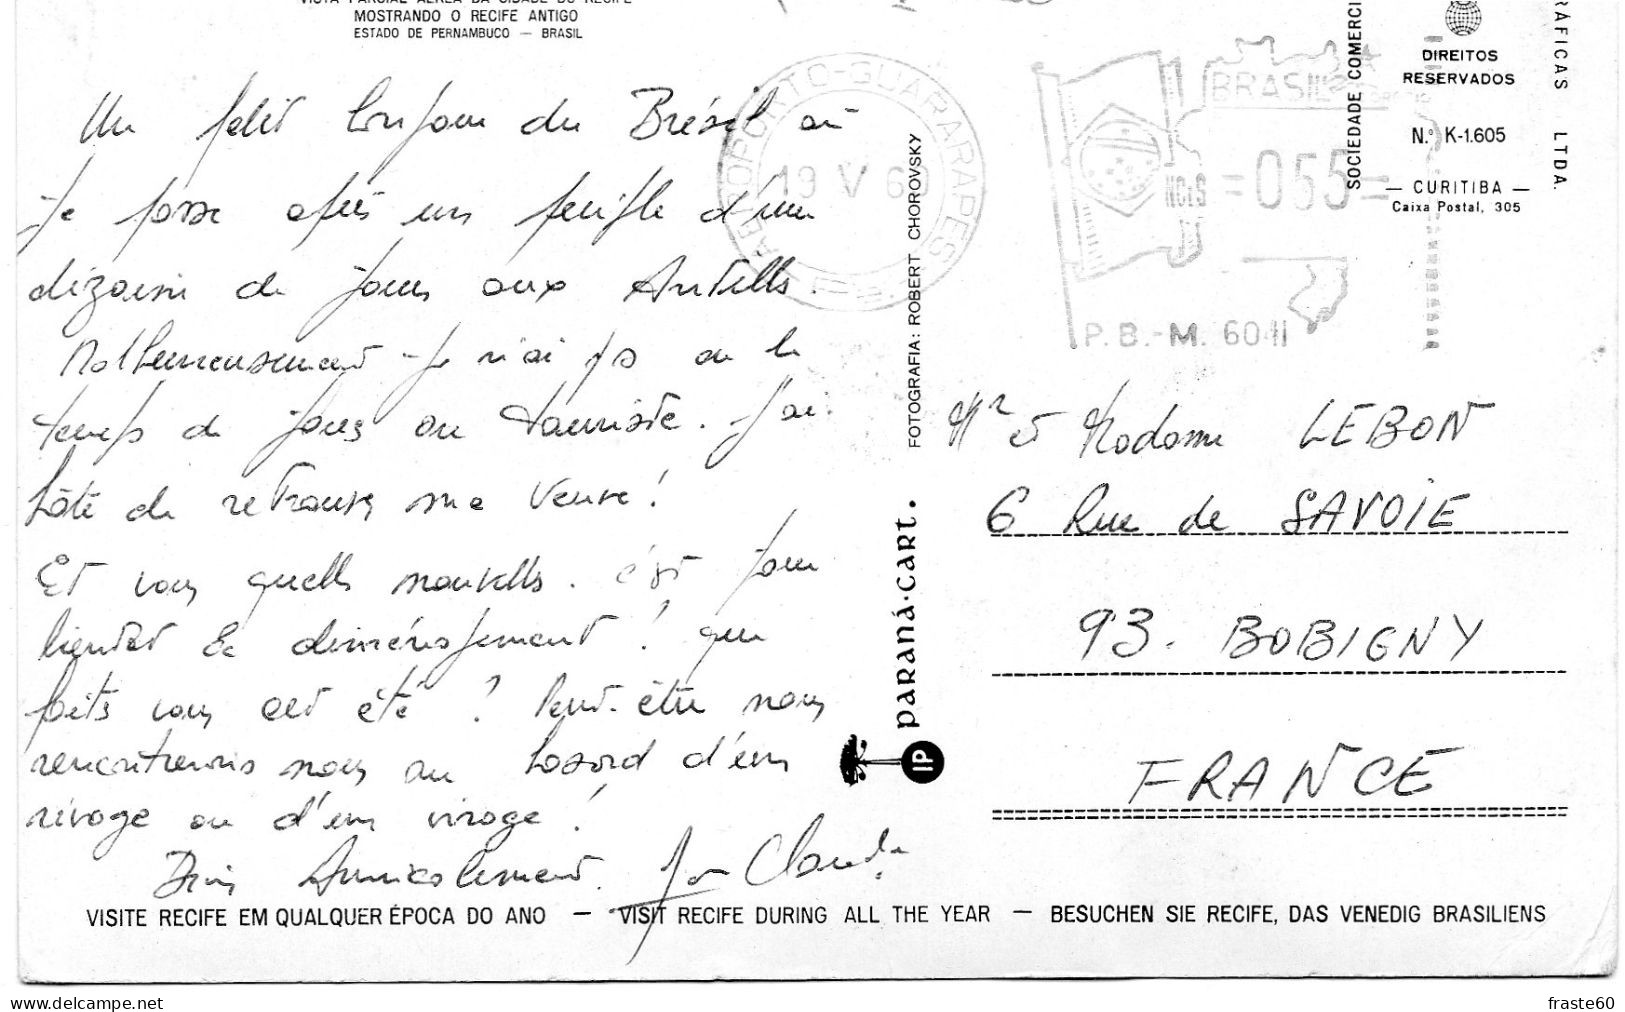 VISTA PARCIAL AEREA DA CIDADE DO RECIFE
MOSTRANDO O RECIFE ANTIGO
ESTADO DE PERNAMBUCO — BRASIL
Un petit bonjour du Brésil où
je passe après un périple d'une
dizaine de jours aux Antilles.
Malheureusement je n'ai pas eu le
temps de jouer au touriste. J'ai
hâte de retrouver ma Veuve!
Et vous quelles nouvelles. c'est pour
bientôt le déménagement! que
faites vous cet été? Peut-être nous
rencontrerons nous au hasard d'un
rivage ou d'un virage!
Bien Amicalement. Jean Claude
AEROPORTO-GUARARAPES
19 V 69
BRASIL
NCr$ =055=
P.B.-M. 6041
FOTOGRAFIA: ROBERT CHOROVSKY
PARANÁ-CART.
IP
SOCIEDADE COMERCI
RÁFICAS LTDA.
DIREITOS
RESERVADOS
N.º K-1.605
— CURITIBA —
Caixa Postal, 305
Mr et Madame LEBON
6 Rue de SAVOIE
93. BOBIGNY
FRANCE
VISITE RECIFE EM QUALQUER ÉPOCA DO ANO — VISIT RECIFE DURING ALL THE YEAR — BESUCHEN SIE RECIFE, DAS VENEDIG BRASILIENS
www.delcampe.net
fraste60